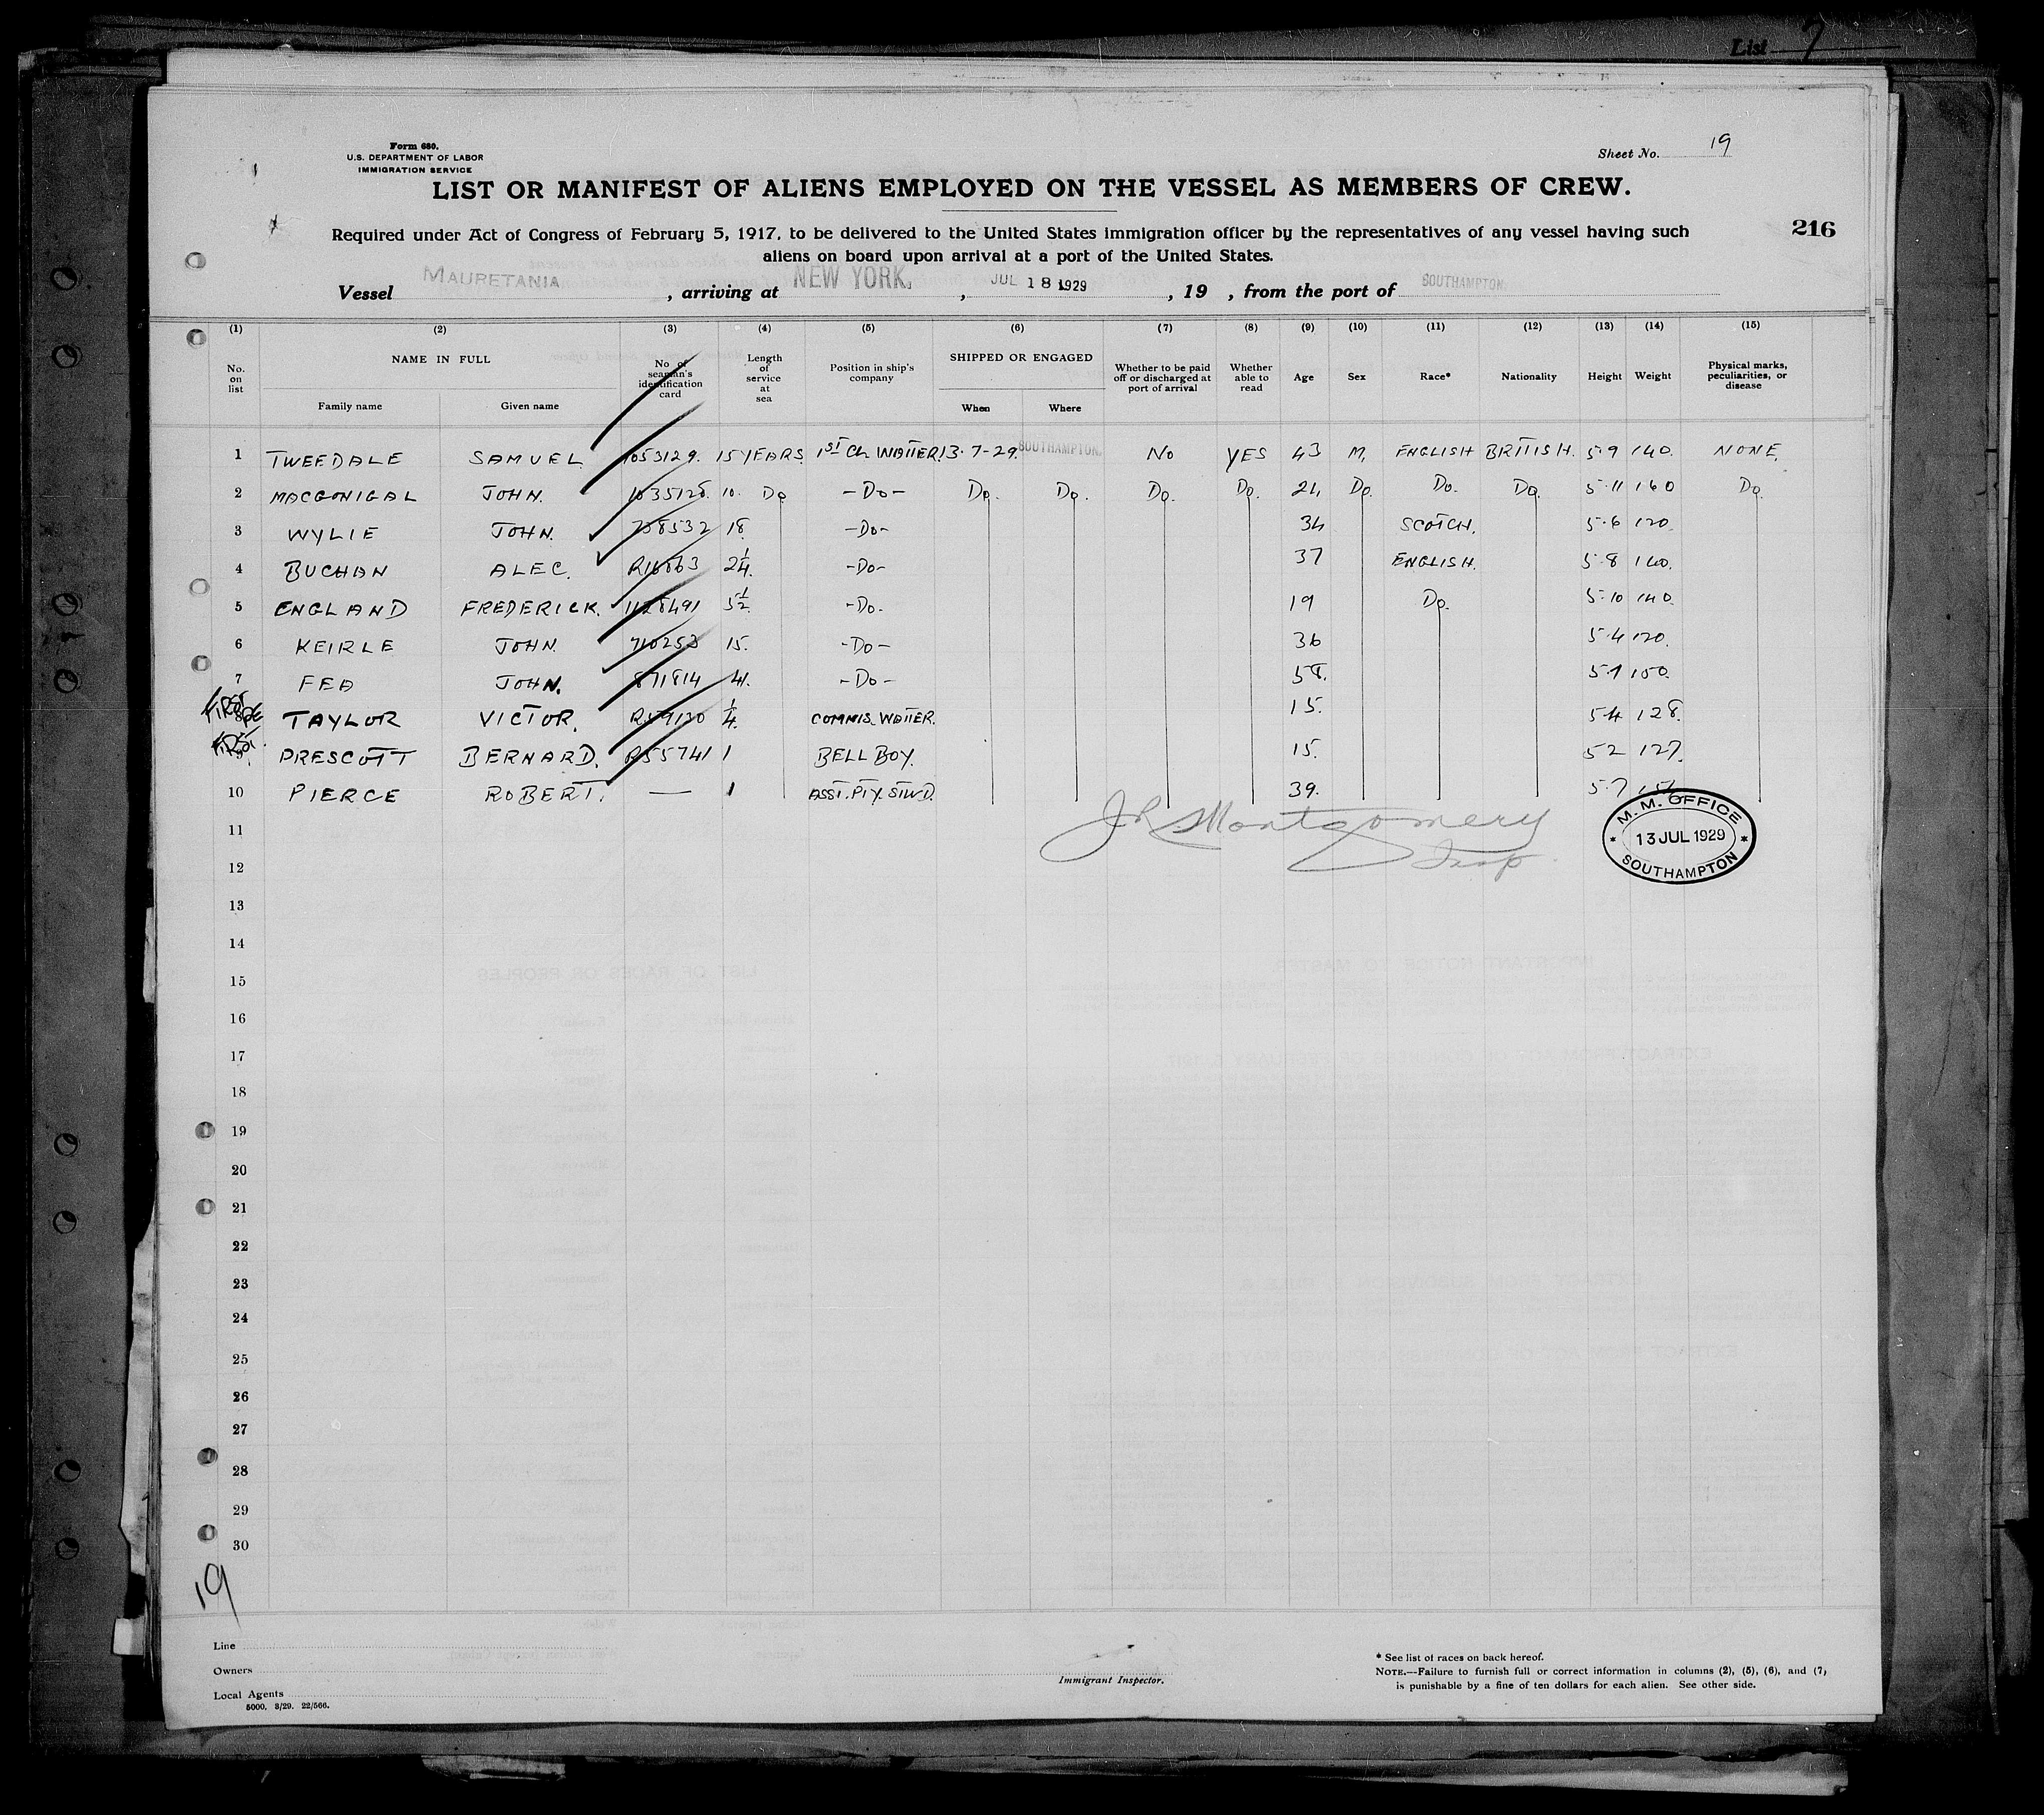 List 7
Form 680.
U.S. DEPARTMENT OF LABOR
IMMIGRATION SERVICE
Sheet No. 19
LIST OR MANIFEST OF ALIENS EMPLOYED ON THE VESSEL AS MEMBERS OF CREW.
216
Required under Act of Congress of February 5, 1917, to be delivered to the United States immigration officer by the representatives of any vessel having such
aliens on board upon arrival at a port of the United States.
Vessel MAURETANIA, arriving at NEW YORK, JUL 18 1929, 19 , from the port of SOUTHAMPTON.
(1) (2) (3) (4) (5) (6) (7) (8) (9) (10) (11) (12) (13) (14) (15)
No. on list
NAME IN FULL
Family name Given name
No. of seaman's identification card
Length of service at sea
Position in ship's company
SHIPPED OR ENGAGED
When Where
Whether to be paid off or discharged at port of arrival
Whether able to read
Age Sex Race* Nationality Height Weight
Physical marks, peculiarities, or disease
1 TWEEDALE SAMUEL 1053129. 15 YEARS. 1ST CL WAITER 13-7-29. SOUTHAMPTON. NO YES 43 M. ENGLISH BRITISH. 5-9 140. NONE.
2 MACGONIGAL JOHN. 10. Do -Do- Do. Do. Do. Do. 24 Do. Do. Do. 5-11 160 Do.
3 WYLIE JOHN. 18. -Do- 34 SCOTCH. 5-6 120.
4 BUCHAN ALEC. 2¼. -Do- 37 ENGLISH. 5-8 140.
5 ENGLAND FREDERICK. 1128491 -Do- 19 Do. 5-10 140.
6 KEIRLE JOHN. 710253 15. -Do- 36 5-4 120.
7 FEA JOHN. 871814 41. -Do- 58. 150.
FIRST
8 TAYLOR VICTOR. ¼. COMMIS. WAITER. 15. 5-4 128.
FIRST.
9 PRESCOTT BERNARD. R55741 1 BELL BOY. 15. 5-2 127.
10 PIERCE ROBERT. — 1 ASST. PTY. STWD. 39. 5-7
J R Montgomery
Insp
M. M. OFFICE
13 JUL 1929
SOUTHAMPTON
11
12
13
14
15
16
17
18
19
20
21
22
23
24
25
26
27
28
29
30
19
Line
Owners
Local Agents
5000. 3/29. 22/566.
Immigrant Inspector.
* See list of races on back hereof.
NOTE.—Failure to furnish full or correct information in columns (2), (5), (6), and (7)
is punishable by a fine of ten dollars for each alien. See other side.